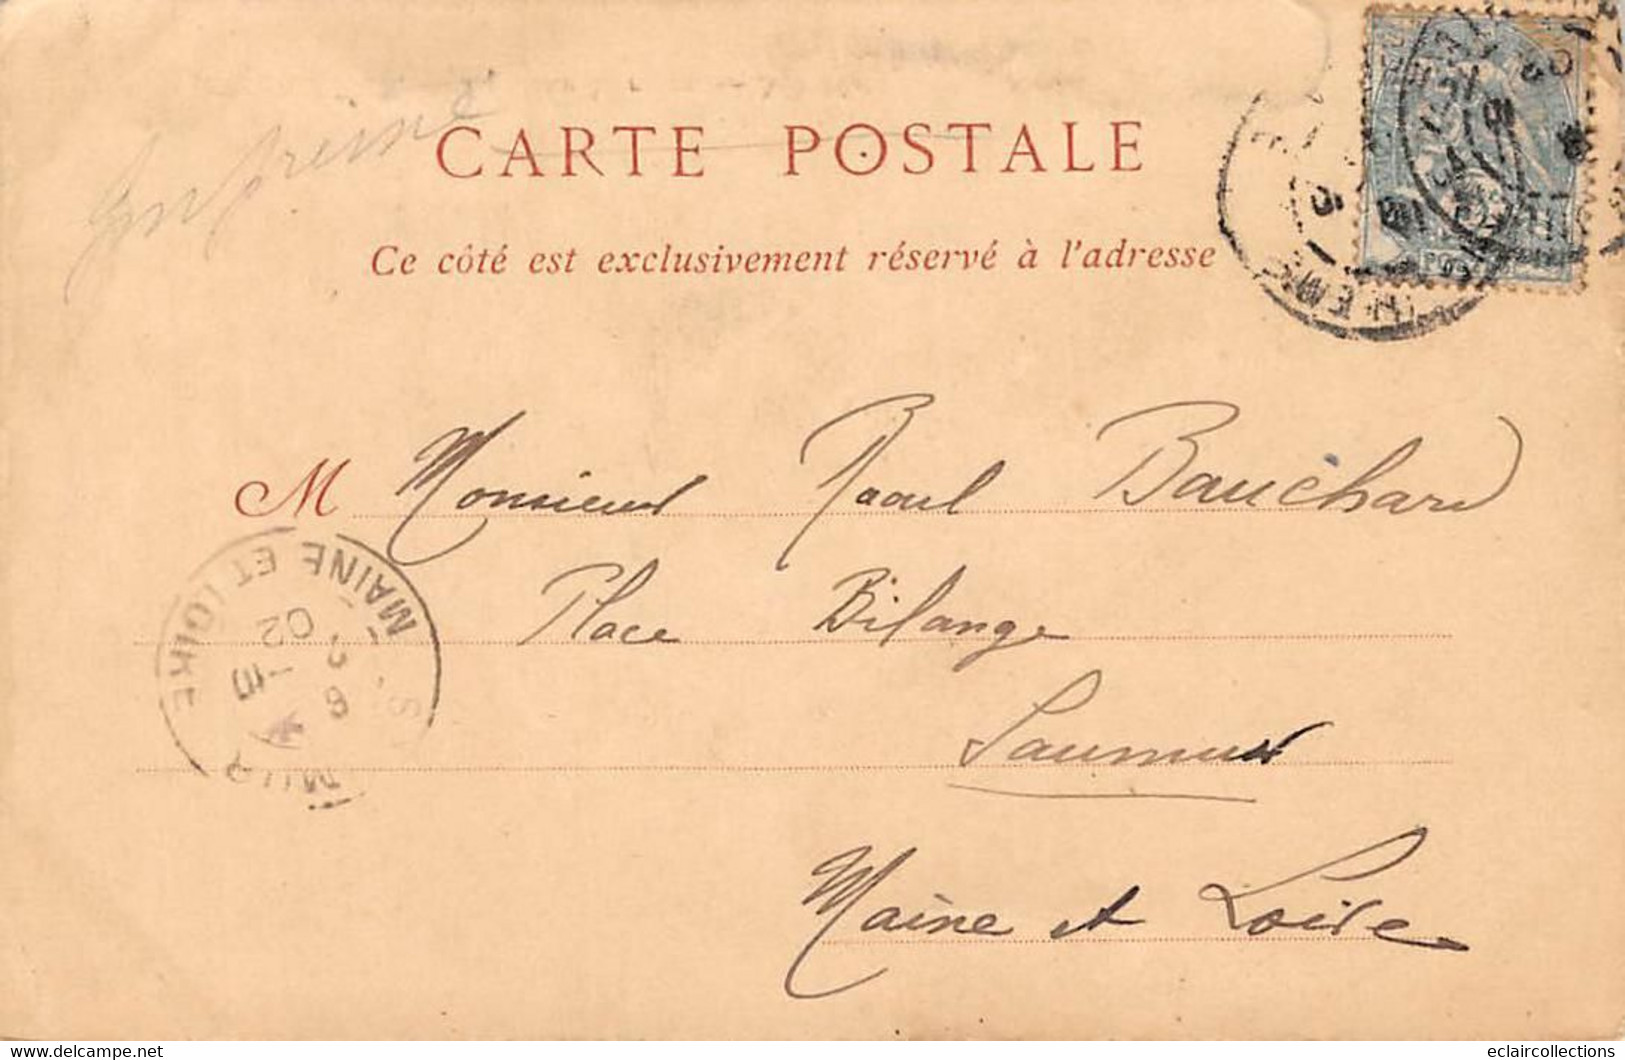 CARTE POSTALE
Ce côté est exclusivement réservé à l'adresse
M Monsieur Raoul Bauchard
Place Bilange
Saumur
Maine et Loire
MAINE ET LOIRE
6
02
eclaircollections